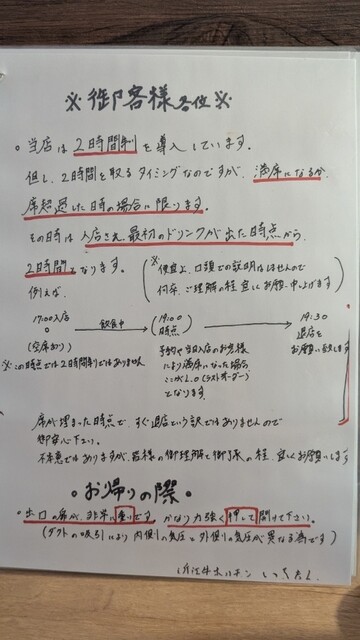 ※御客様各位※
。当店は2時間制を導入しています。
但し、2時間を取るタイミングなのですが、満席になるか、
席超過した時の場合に限ります。
その時は入店され最初のドリンクが出た時点から、
2時間となります。
※便宜上、口頭での説明は致しませんので
何卒、ご理解の程宜しくお願い申し上げます
例えば、
17:00入店 飲食中 (19:00時点) 19:30
(空席あり) 予約や当日入店のお客様 退店を
により満席になった場合 お願い致します
※この時点では2時間制ではありません
ここがL.O(ラストオーダー)
となります。
席が埋まった時点で、すぐ退店という訳ではありませんので
御安心下さい。
不本意ではありますが、皆様の御理解と御了承の程、宜しくお願いします
。お帰りの際。
。出口の扉が、非常に重いです。かなり力強く押して開けて下さい。
(ダクトの吸引により内側の気圧と外側の気圧が異なる為です)
近江牛ホルモン